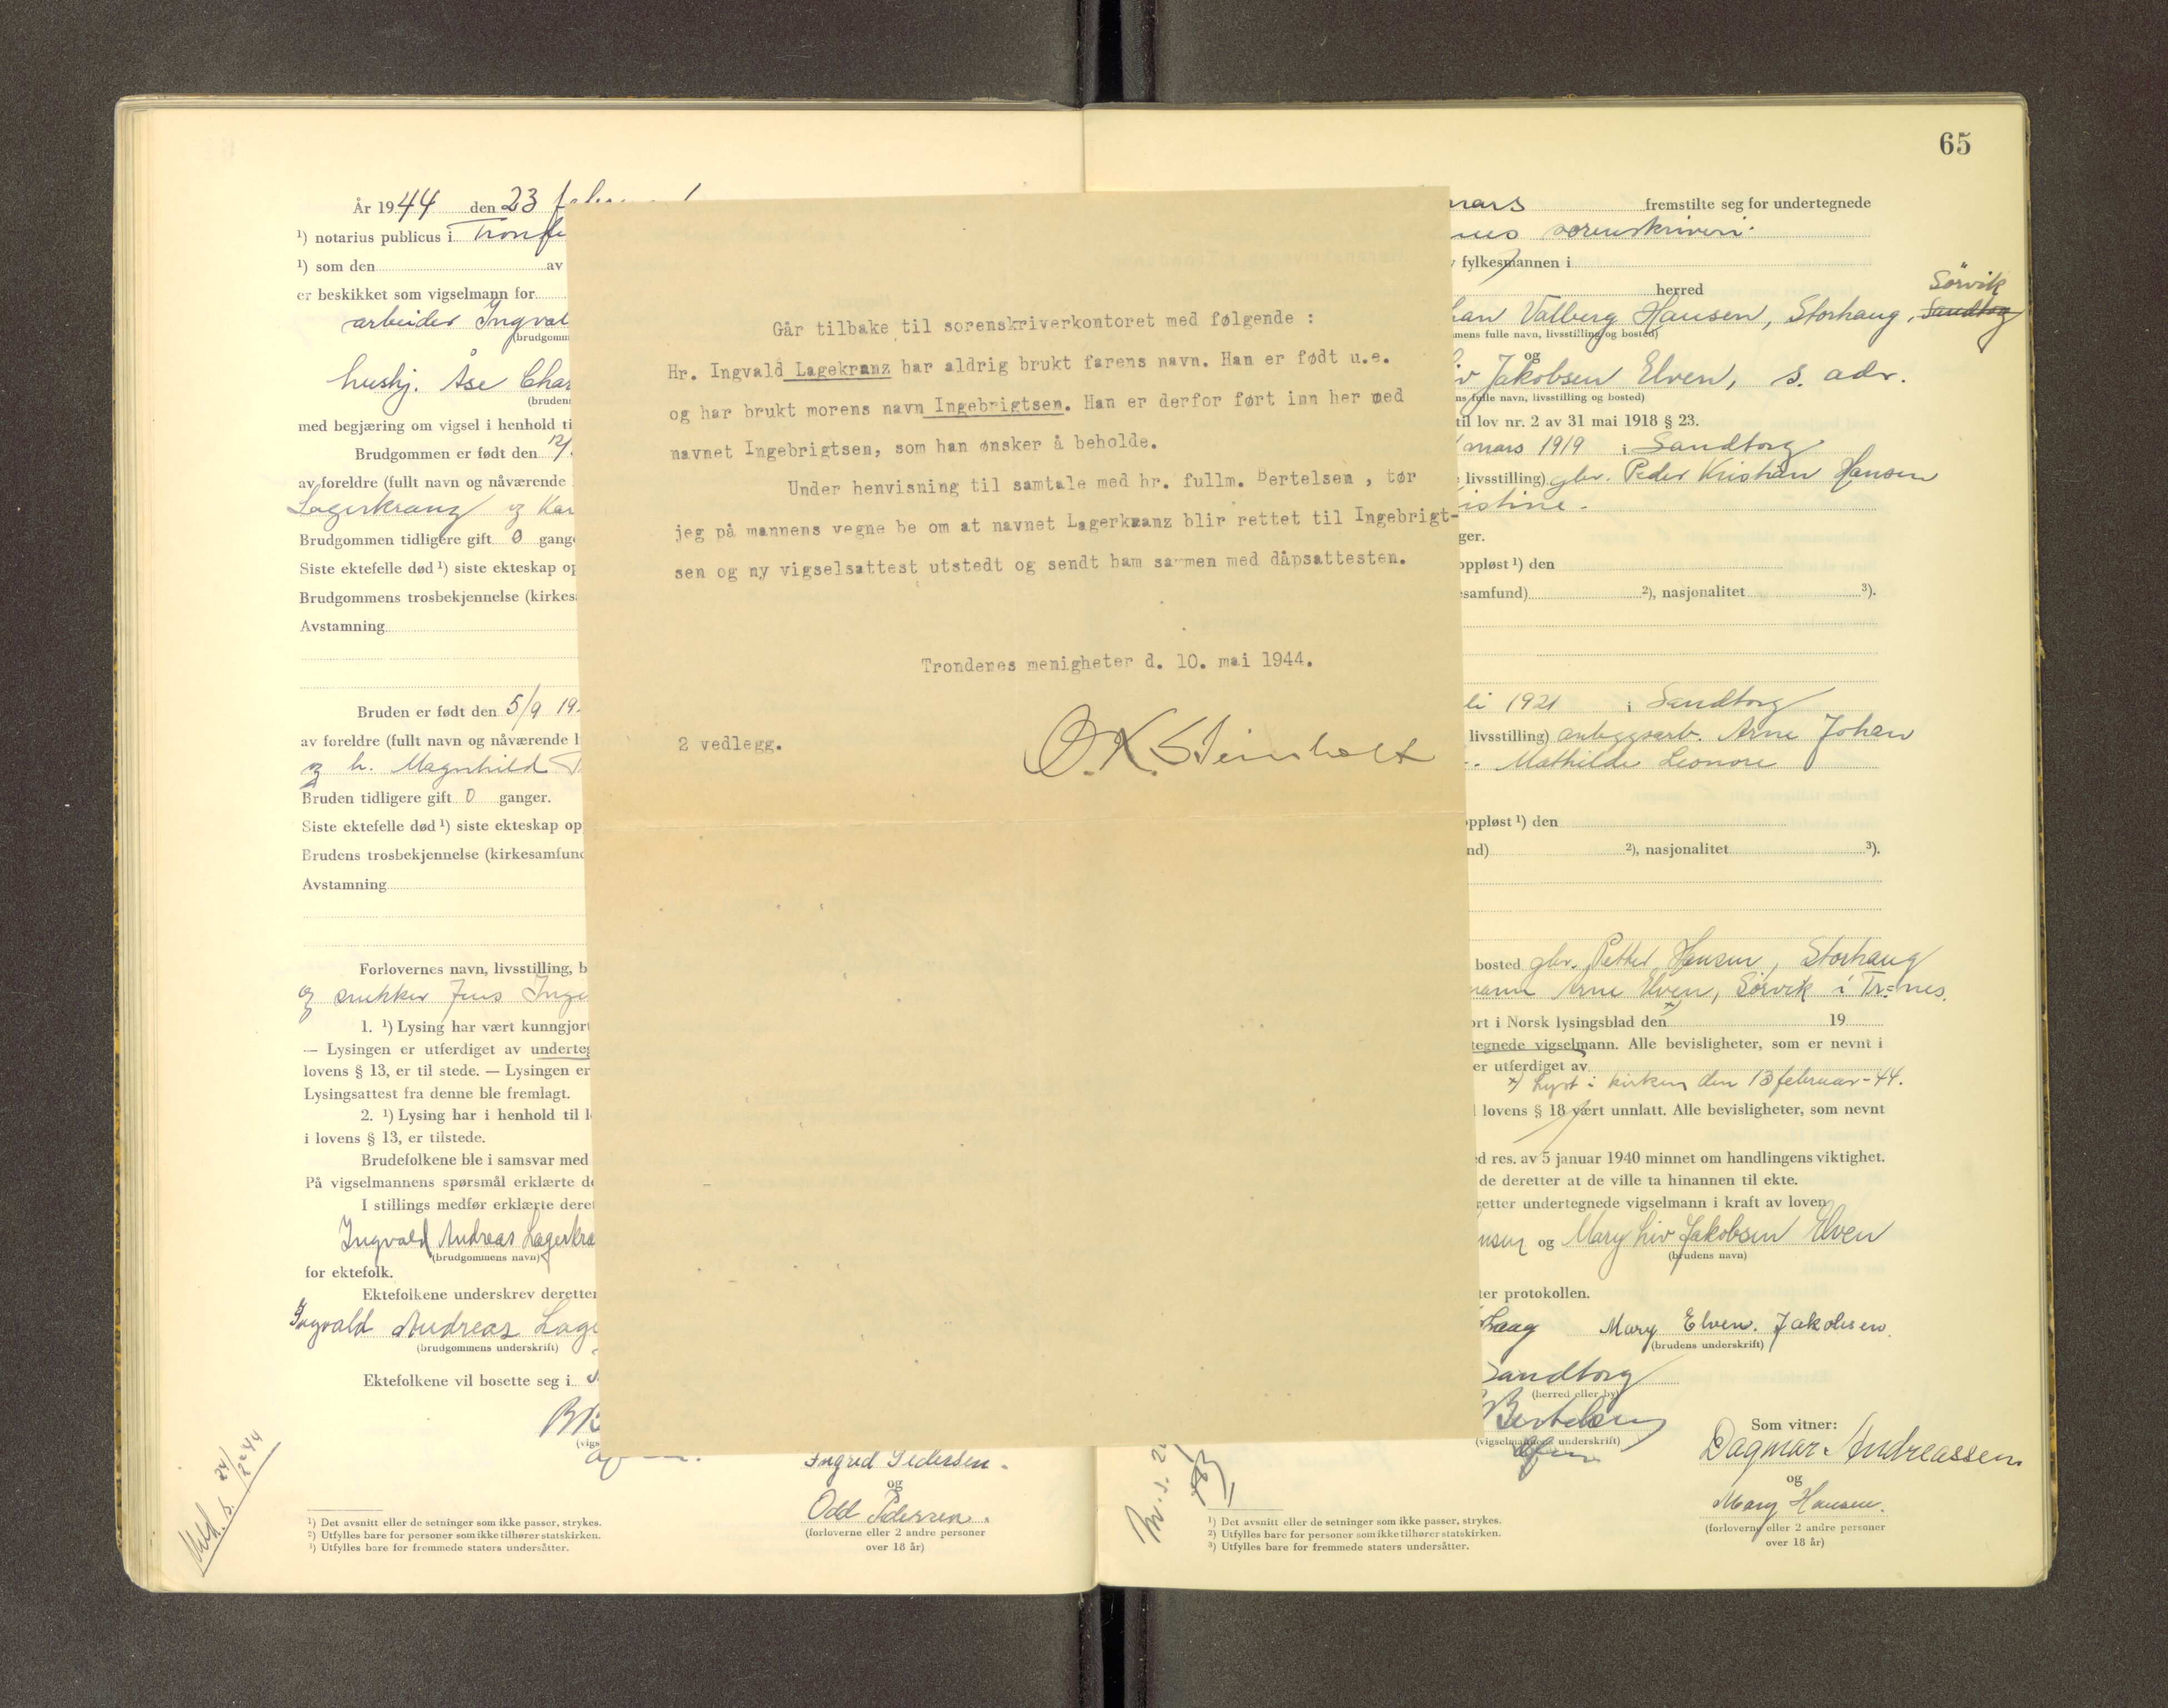 År 1944 den 23 februar
¹) notarius publicus i
¹) som den av
er beskikket som vigselmann for
arbeider Ingval
(brudgomm
hushj. Åse Char
(brudens
med begjæring om vigsel i henhold ti
Brudgommen er født den 12/
av foreldre (fullt navn og nåværende
Lagerkranz og Kar
Brudgommen tidligere gift 0 gang
Siste ektefelle død ¹) siste ekteskap op
Brudgommens trosbekjennelse (kirkes
Avstamning
Bruden er født den 5/9 19
av foreldre (fullt navn og nåværende l
og h. Magnhild
Bruden tidligere gift 0 ganger.
Siste ektefelle død ¹) siste ekteskap op
Brudens trosbekjennelse (kirkesamfund
Avstamning
Forlovernes navn, livsstilling, b
og snekker Jens Inge
1. ¹) Lysing har vært kunngjort
— Lysingen er utferdiget av underteg
lovens § 13, er til stede. — Lysingen er
Lysingsattest fra denne ble fremlagt.
2. ¹) Lysing har i henhold til l
i lovens § 13, er tilstede.
Brudefolkene ble i samsvar med
På vigselmannens spørsmål erklærte de
I stillings medfør erklærte deret
Ingvald Andreas Lagerkra
(brudgommens navn)
for ektefolk.
Ektefolkene underskrev deretter
Ingvald Andreas Lage
(brudgommens underskrift)
Ektefolkene vil bosette seg i
(vigs
Ingrid Pedersen
og
Odd Pedersen
(forloverne eller 2 andre personer
over 18 år)
24/2-44
¹) Det avsnitt eller de setninger som ikke passer, strykes.
²) Utfylles bare for personer som ikke tilhører statskirken.
³) Utfylles bare for fremmede staters undersåtter.
Går tilbake til sorenskriverkontoret med følgende :
Hr. Ingvald Lagekranz har aldrig brukt farens navn. Han er født u.e.
og har brukt morens navn Ingebrigtsen. Han er derfor ført inn her med
navnet Ingebrigtsen, som han ønsker å beholde.
Under henvisning til samtale med hr. fullm. Bertelsen , tør
jeg på mannens vegne be om at navnet Lagerkranz blir rettet til Ingebrigt-
sen og ny vigselsattest utstedt og sendt ham sammen med dåpsattesten.
Trondenes menigheter d. 10. mai 1944.
2 vedlegg.
O.K. Steinholt
65
mars fremstilte seg for undertegnede
nes sorenskriveri.
v fylkesmannen i
herred
Sørvik
han Valberg Hansen, Storhaug, Sandtorg
mens fulle navn, livsstilling og bosted)
og
iv Jakobsen Elven, s. adr.
ns fulle navn, livsstilling og bosted)
til lov nr. 2 av 31 mai 1918 § 23.
mars 1919 i Sandtorg
livsstilling) gbr. Peder Kristian Hansen
istine.
ger.
oppløst ¹) den
esamfund) ²), nasjonalitet ³).
li 1921 i Sandtorg
livsstilling) anleggsarb. Arne Johan
Mathilde Leonore
oppløst ¹) den
nd) ²), nasjonalitet ³).
bosted gbr. Petter Hansen, Storhaug
mann Arne Elven, Sørvik i Tr=nes.
ort i Norsk lysingsblad den x) 19
tegnede vigselmann. Alle bevisligheter, som er nevnt i
er utferdiget av
x) Lyst i kirken den 13 februar-44.
l lovens § 18 vært unnlatt. Alle bevisligheter, som nevnt
d res. av 5 januar 1940 minnet om handlingens viktighet.
de deretter at de ville ta hinannen til ekte.
retter undertegnede vigselmann i kraft av loven
nsen og Mary Liv Jakobsen Elven
(brudens navn)
ter protokollen.
haug Mary Elven. Jakobsen.
(brudens underskrift)
Sandtorg
(herred eller by)
Bertelsen
(vigselmannens underskrift)
Som vitner:
Dagmar Andreassen
og
Mary Hansen.
(forloverne eller 2 andre personer
over 18 år)
¹) Det avsnitt eller de setninger som ikke passer, strykes.
²) Utfylles bare for personer som ikke tilhører statskirken.
³) Utfylles bare for fremmede staters undersåtter.